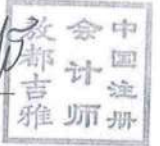 中国注册
会计师
敖都吉雅